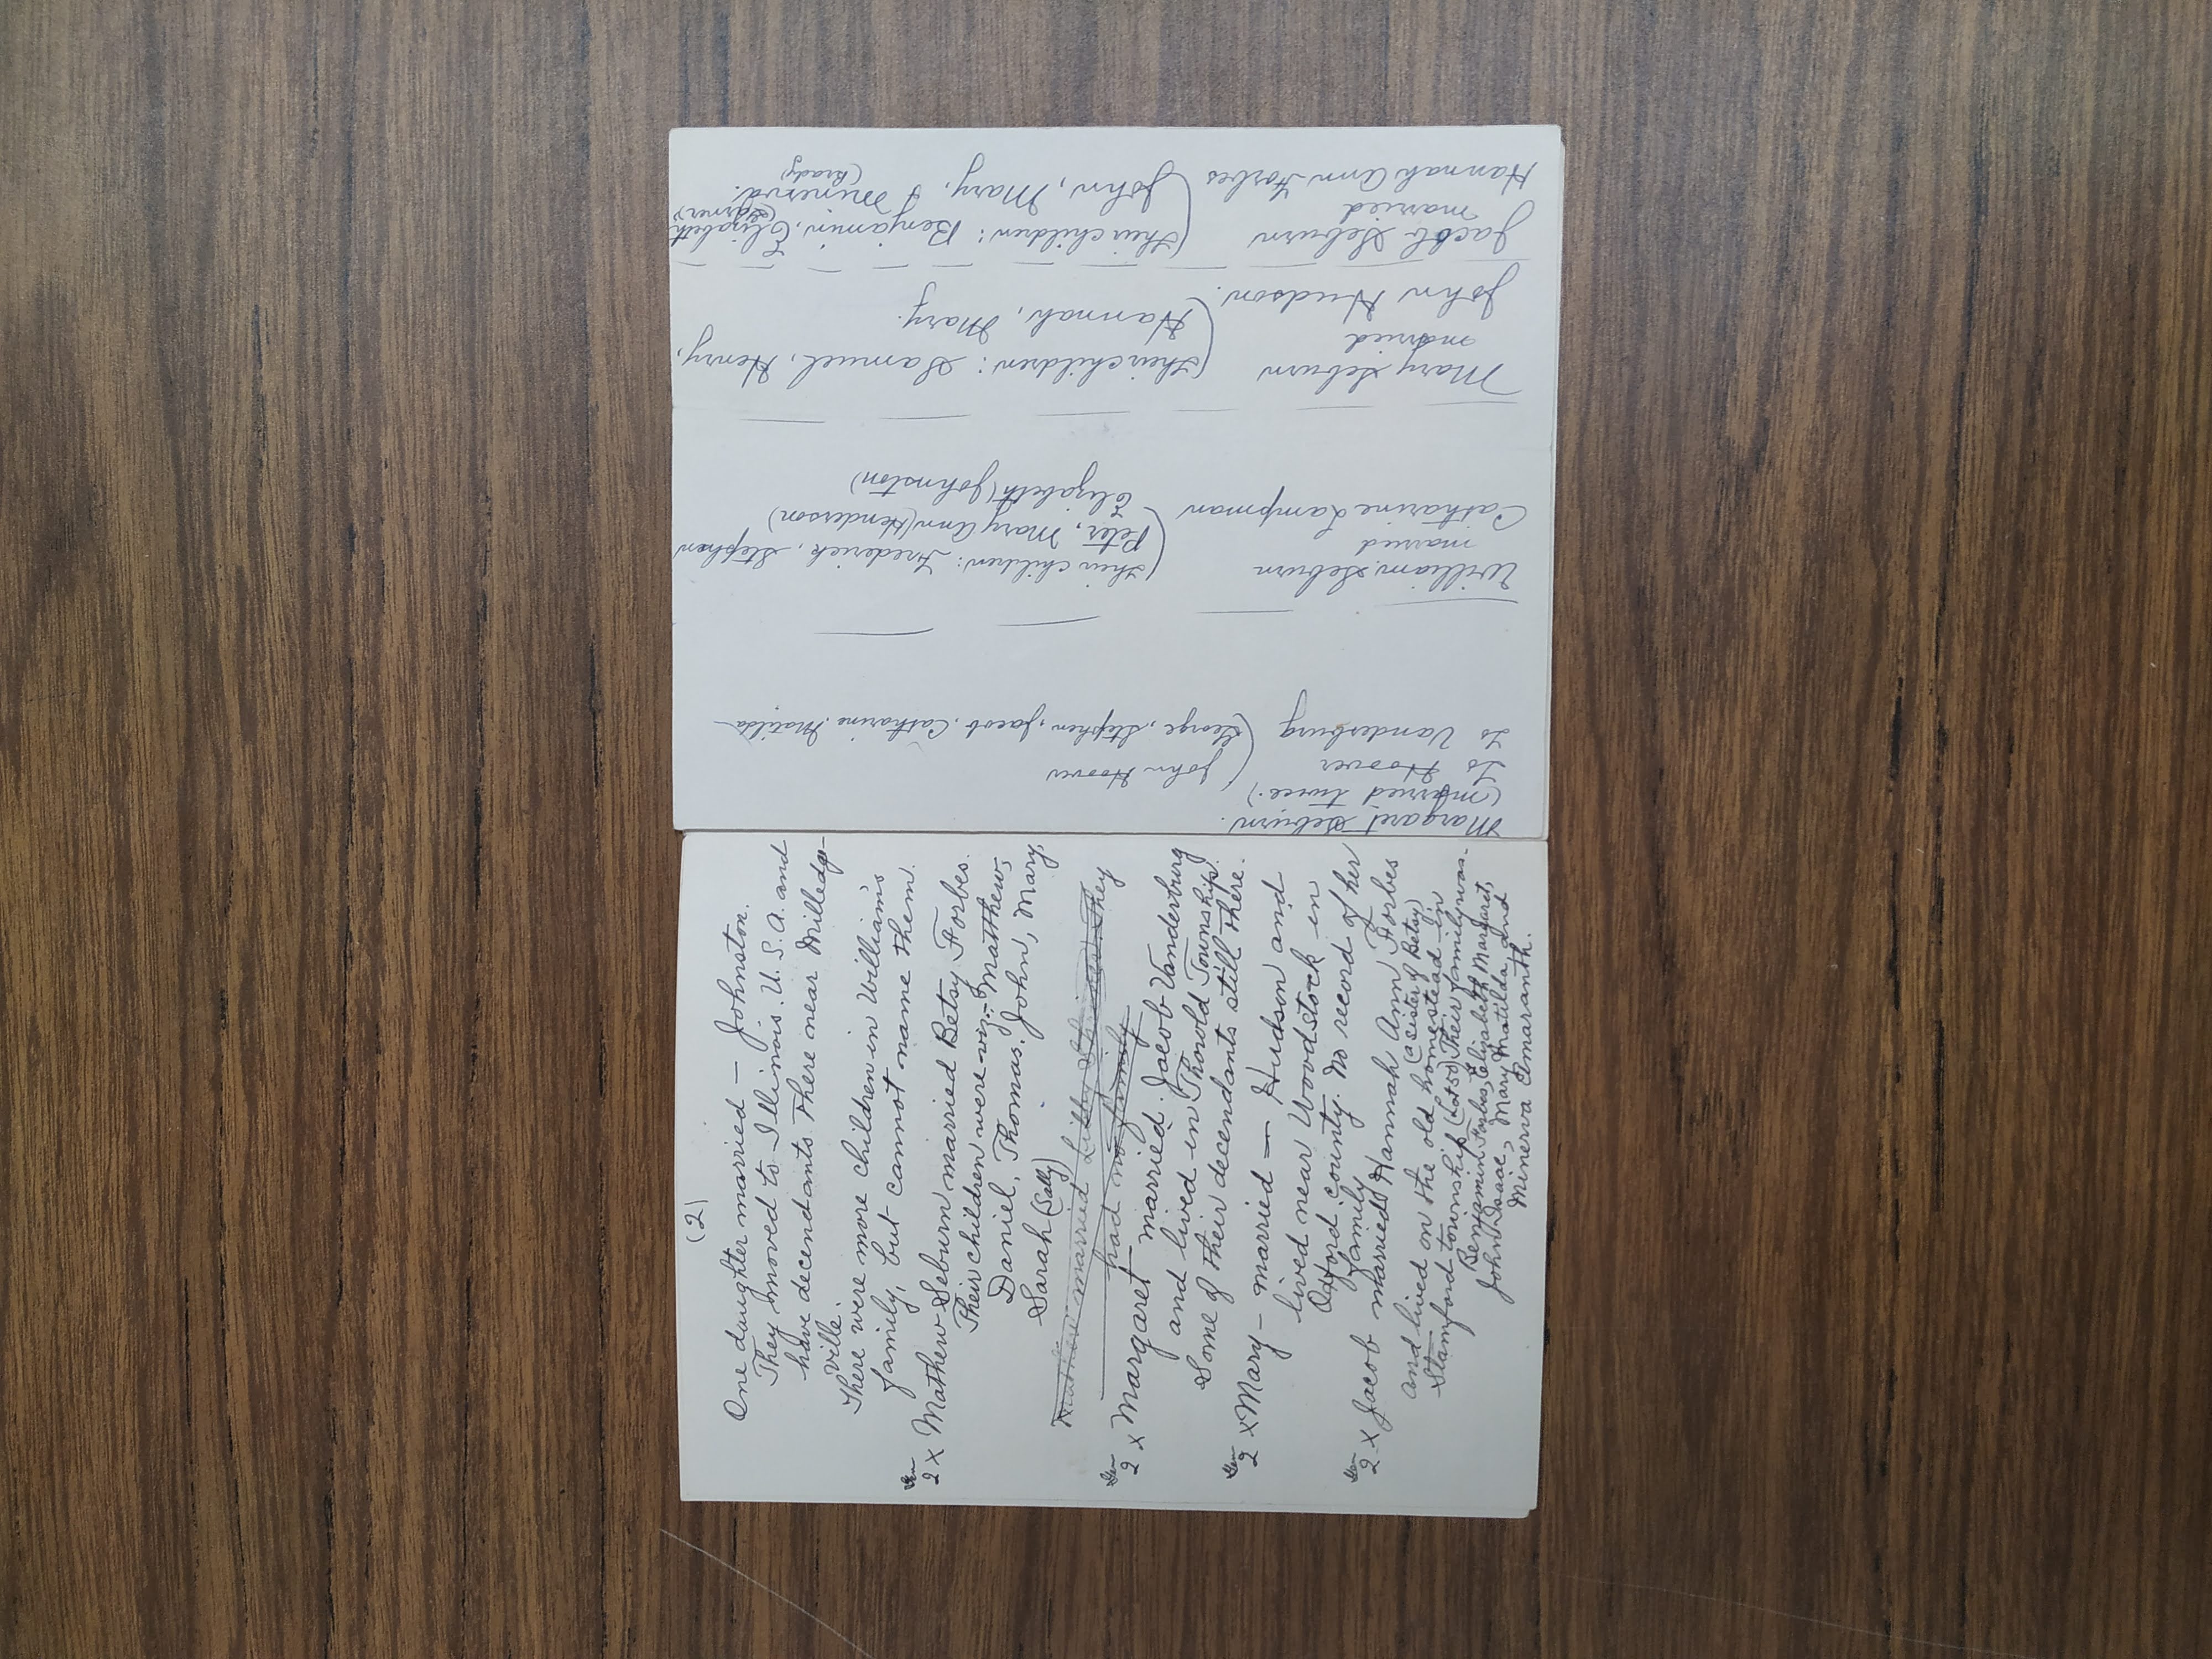 (2)
One daughter married — Johnston.
They moved to Illinois. U.S.A. and
have decendants there near Milledge-
ville.
There were more children in William's
family, but cannot name them.
Gen
2 x Mathew Seburn married Betsy Forbes.
Their children were viz:- Matthew,
Daniel, Thomas, John, Mary,
Sarah (Sally)
married Libby They
had no family
Gen
2 x Margaret married Jacob Vanderburg
and lived in Thorold Township.
Some of their decendants still there.
Gen
2 x Mary — married — Hudson and
lived near Woodstock in
Oxford county. No record of her
family
Gen
2 x Jacob married Hannah Ann Forbes
(a sister of Betsy)
and lived on the old homestead in
Stamford township (Lot 50) Their family was-
Benjamin Forbes, Elizabeth Margaret,
John Isaac, Mary Matilda and
Minerva Amaranth.
Margaret Seburn.
(married twice.)
To Hoover (John Hoover
To Vanderburg (George, Stephen, Jacob, Catharine, Matilda
William Seburn (their children: Frederick, Stephen
married (Peter, Mary Ann (Henderson)
Catharine Lampman Elizabeth (Johnston)
Mary Seburn (their children: Samuel, Henry,
married (Hannah, Mary.
John Hudson.
Jacob Seburn (their children: Benjamin, Elizabeth
(Garner)
married (John, Mary, & Minerva.
(Keady)
Hannah Ann Forbes